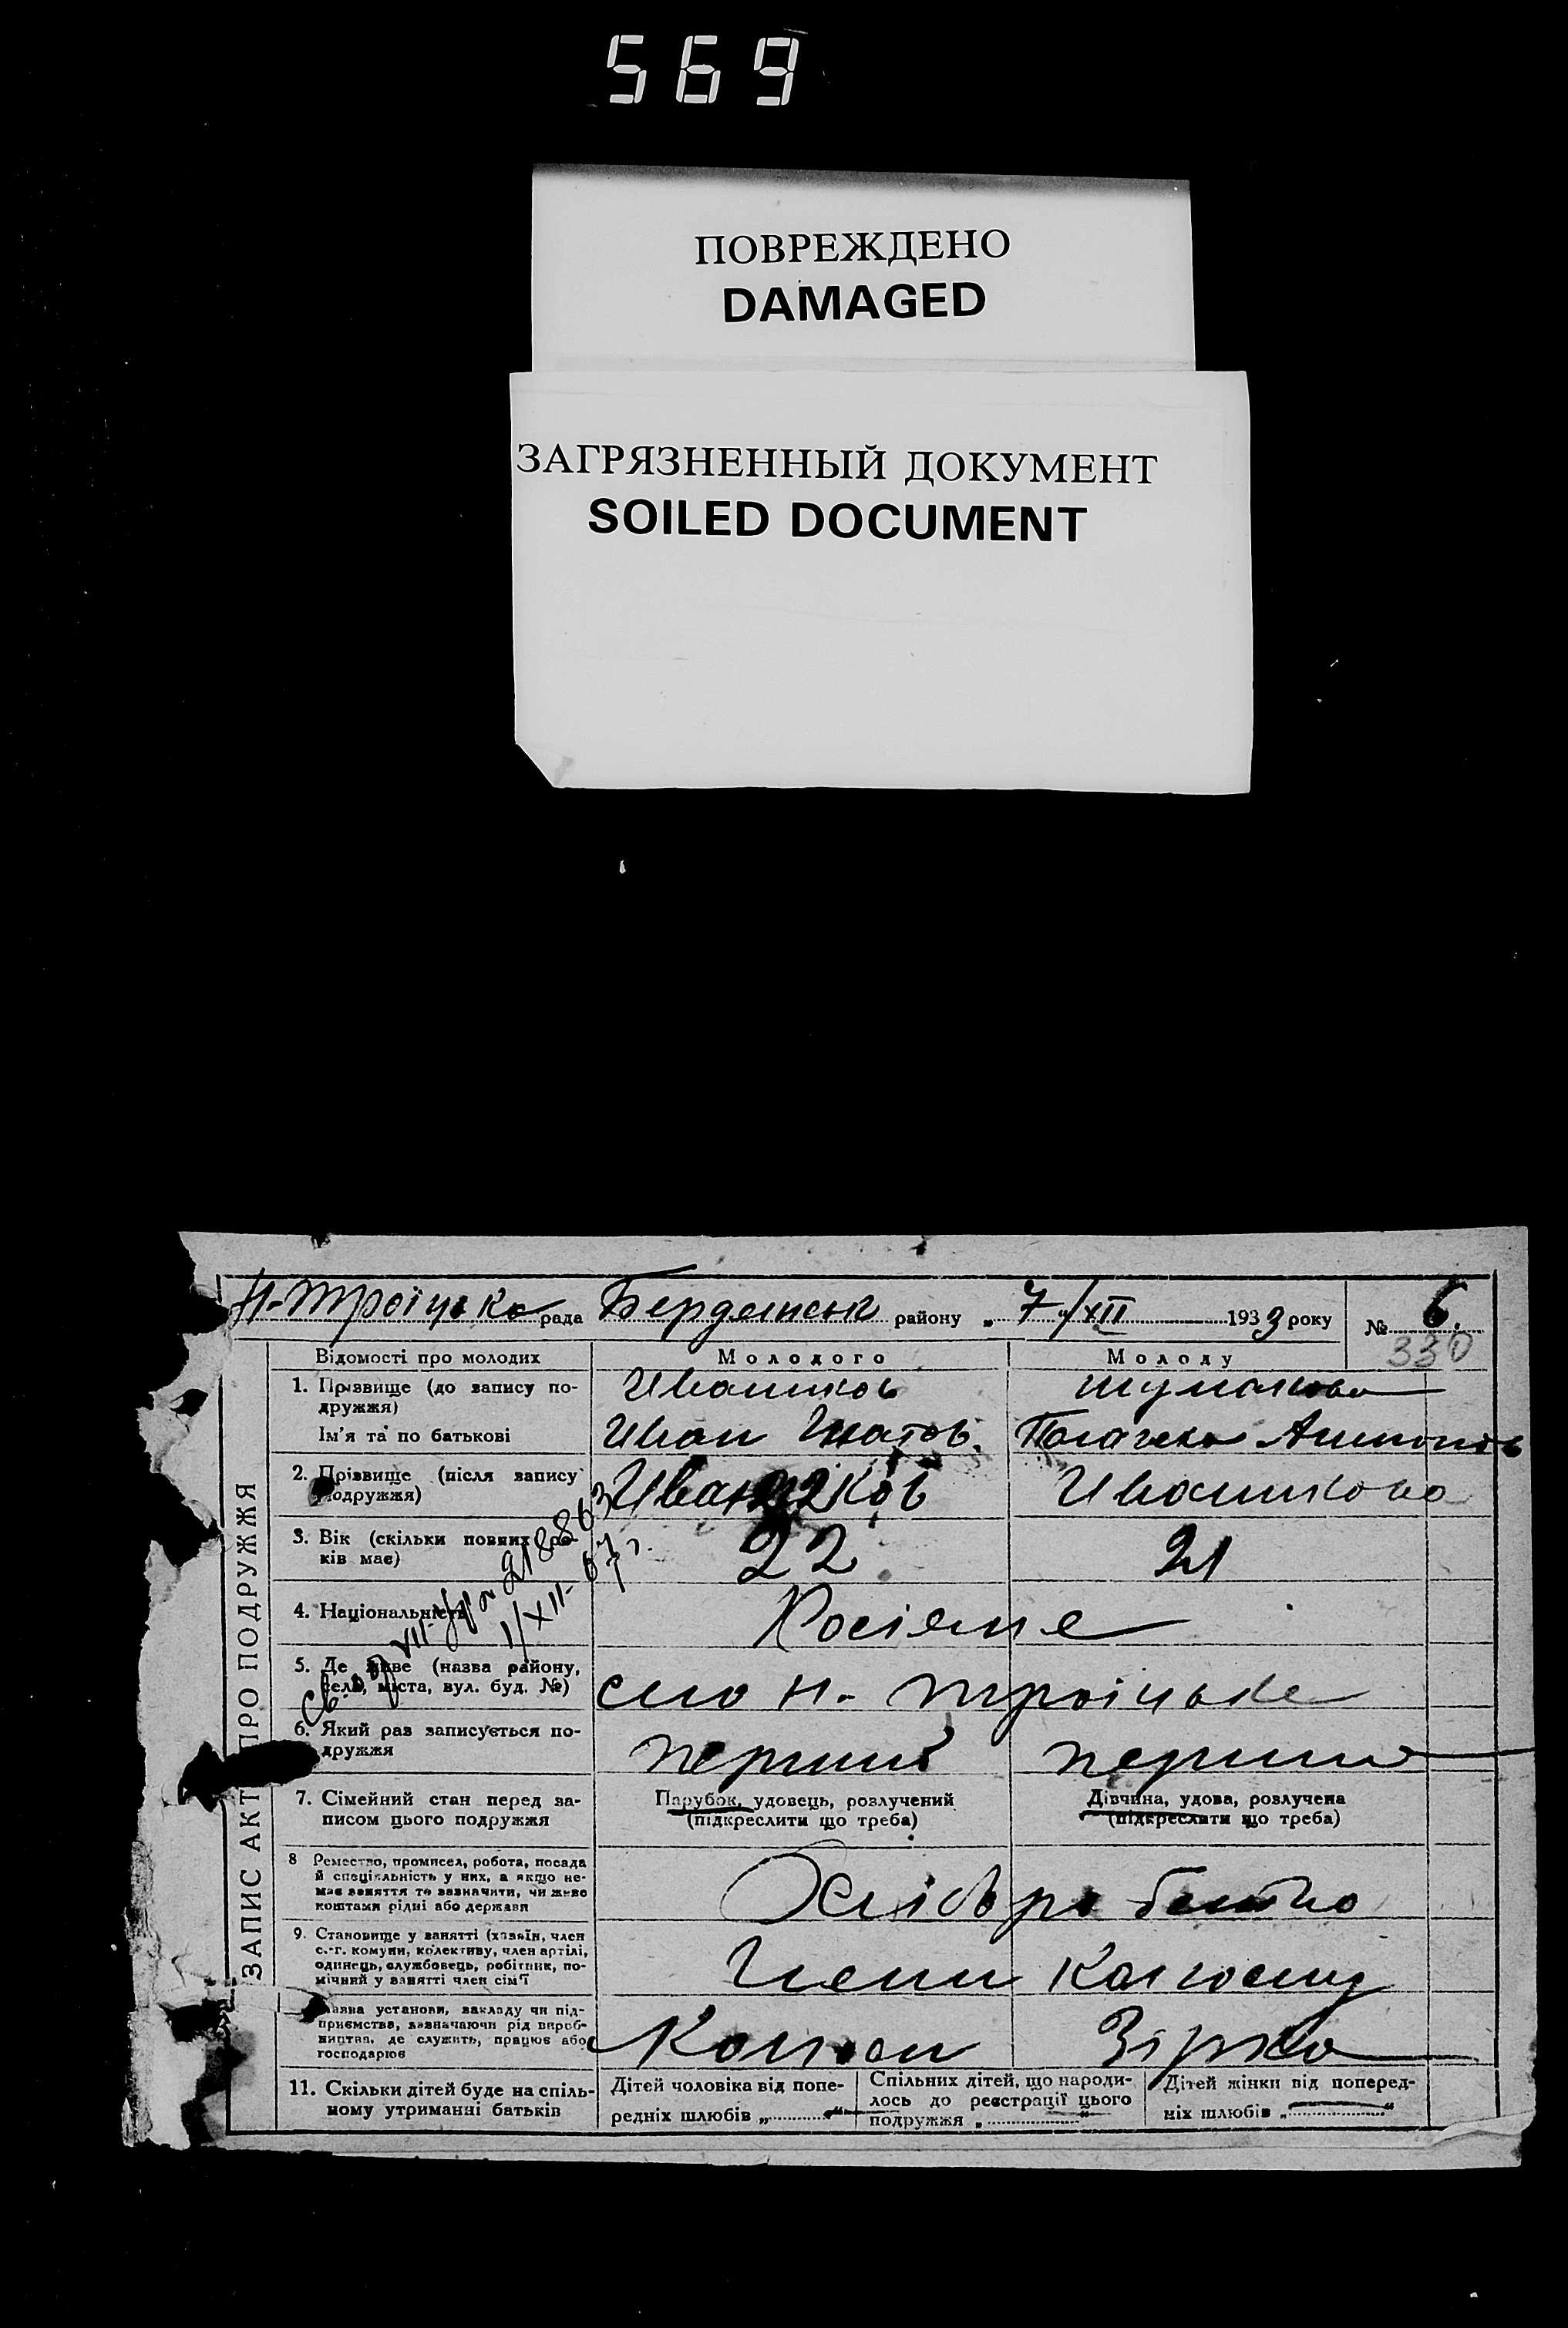 569
ПОВРЕЖДЕНО
DAMAGED
ЗАГРЯЗНЕННЫЙ ДОКУМЕНТ
SOILED DOCUMENT
Н-Троїцька рада Бердянськ району „7"/XII 1933 року № 6.
330
ЗАПИС АКТ ПРО ПОДРУЖЖЯ
Відомості про молодих Молодого Молоду
1. Прізвище (до запису по-
дружжя) Ивашков Шумакова
Ім'я та по батькові Иван Игнатов. Пелагея
2. Прізвище (після запису
подружжя) Ивашков Ивашкова
3. Вік (скільки повних ро-
ків має) 22 21
4. Національність Росіяне
5. Де живе (назва району,
села, міста, вул. буд. №) село Н-Троїцьке
6. Який раз записується по-
дружжя перший перший
7. Сімейний стан перед за-
писом цього подружжя
Парубок, удовець, розлучений
(підкреслити що треба)
Дівчина, удова, розлучена
(підкреслити що треба)
8 Ремество, промисел, робота, посада
й спеціяльність у них, а якщо не-
має заняття то зазначити, чи живе
коштами рідні або держави
Хліборобство
9. Становище у занятті (хазяїн, член
с.-г. комуни, колективу, член артілі,
одинець, службовець, робітник, по-
мічний у занятті член сім'ї
Члени Колгоспу
Назва установи, закладу чи під-
приємства, зазначаючи рід вироб-
ництва, де служить, працює або
господарює
Колгосп Зірка
11. Скільки дітей буде на спіль-
ному утриманні батьків
Дітей чоловіка від попе-
редніх шлюбів „ "
Спільних дітей, що народи-
лось до реєстрації цього
подружжя „ "
Дітей жінки від поперед-
ніх шлюбів „ "
218863
1/XII-67 г.